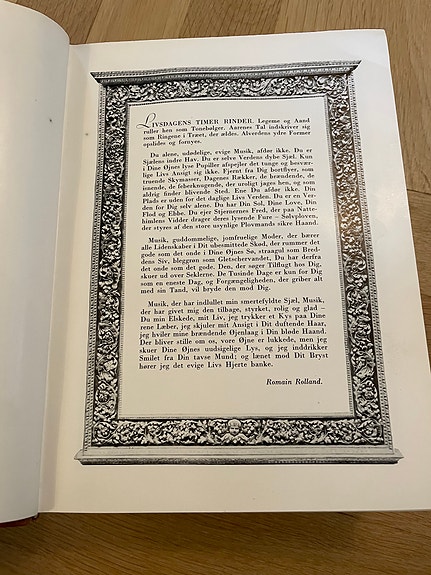 LIVSDAGENS TIMER RINDER. Legeme og Aand
ruller hen som Tonebølger. Aarenes Tal indskriver sig
som Ringene i Træet, der ældes. Alverdens ydre Former
opslides og fornyes.
Du alene, udødelige, evige Musik, afdør ikke. Du er
Sjælens indre Hav. Du er selve Verdens dybe Sjæl. Kun
i Dine Øjnes lyse Pupiller afspejler det tunge og besvær-
lige Livs Ansigt sig ikke. Fjernt fra Dig bortflyer, som
truende Skymasser, Dagenes Rækker, de brændende, de
isnende, de feberknugende, der uroligt jages hen, og som
aldrig finder blivende Sted. Ene Du afdør ikke. Din
Plads er uden for det daglige Livs Verden. Du er en Ver-
den for Dig selv alene. Du har Din Sol, Dine Love, Din
Flod og Ebbe. Du ejer Stjernernes Fred, der paa Natte-
himlens Vidder drager deres lysende Fure – Sølvploven,
der styres af den store usynlige Plovmands sikre Haand.
Musik, guddommelige, jomfruelige Moder, der bærer
alle Lidenskaber i Dit ubesmittede Skød, der rummet det
gode som det onde i Dine Øjnes Sø, straagul som Bred-
dens Siv, bleggrøn som Gletschervandet, Du har derfra
det onde som det gode. Den, der søger Tilflugt hos Dig,
skuer ud over Seklerne. De Tusinde Dage er kun for Dig
som en eneste Dag, og Forgængeligheden, der griber alt
med sin Tand, vil bryde den mod Dig.
Musik, der har indlullet min smertefyldte Sjæl, Musik,
der har givet mig den tilbage, styrket, rolig og glad –
Du min Elskede, mit Liv, jeg trykker et Kys paa Dine
rene Læber, jeg skjuler mit Ansigt i Dit duftende Haar,
jeg hviler mine brændende Øjenlaag i Din bløde Haand.
Der bliver stille om os, vore Øjne er lukkede, men jeg
skuer Dine Øjnes uudsigelige Lys, og jeg inddrikker
Smilet fra Din tavse Mund; og lænet mod Dit Bryst
hører jeg det evige Livs Hjerte banke.
Romain Rolland.